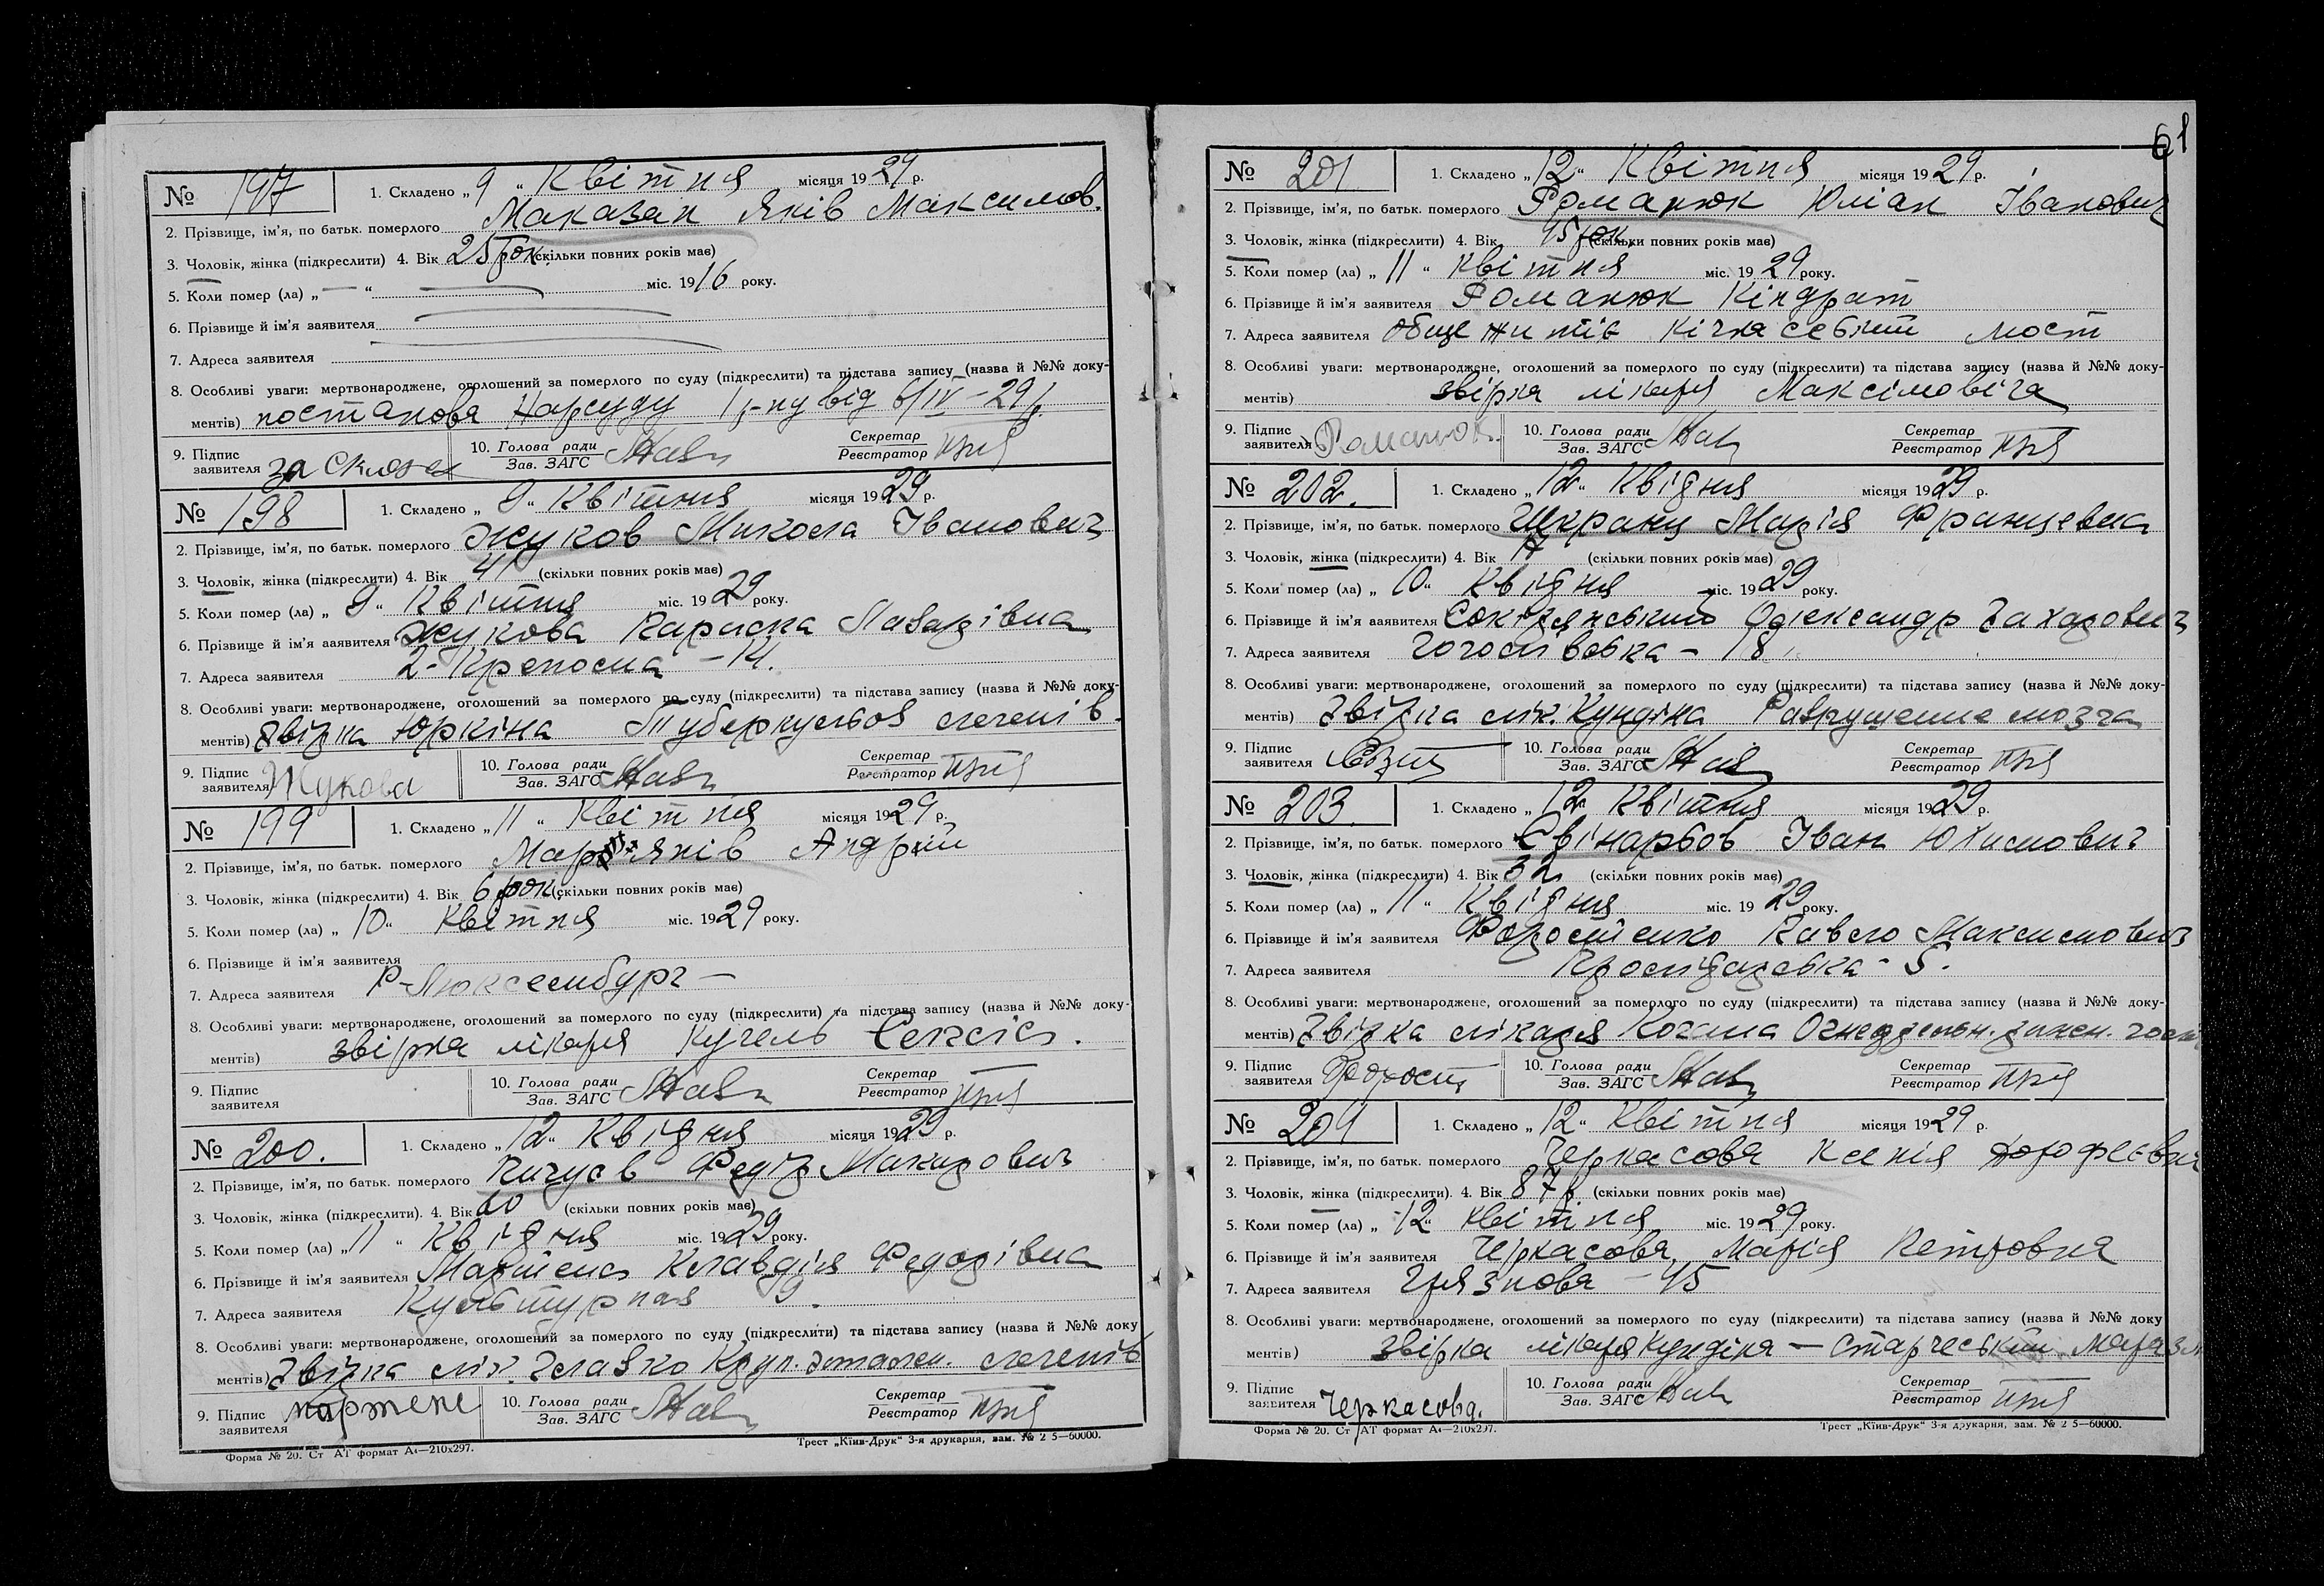 № 197 1. Складено „9“ Квітня місяця 1929 р.
2. Прізвище, ім’я, по батьк. померлого Маказан Яків Максимов.
3. Чоловік, жінка (підкреслити) 4. Вік 25 рок. (скільки повних років має)
5. Коли помер (ла) „—“ — міс. 1916 року.
6. Прізвище й ім’я заявителя
7. Адреса заявителя
8. Особливі уваги: мертвонароджене, оголошений за померлого по суду (підкреслити) та підстава запису (назва й №№ доку-
ментів) постанова Нарсуду від 6/IV-29
9. Підпис заявителя за 10. Голова ради Зав. ЗАГС Секретар Реєстратор
№ 198 1. Складено „9“ Квітня місяця 1929 р.
2. Прізвище, ім’я, по батьк. померлого Жуков Микола Іванович
3. Чоловік, жінка (підкреслити) 4. Вік 41 (скільки повних років має)
5. Коли помер (ла) „9“ Квітня міс. 1929 року.
6. Прізвище й ім’я заявителя Жукова Лазарівна
7. Адреса заявителя 2-Крепосна - 14.
8. Особливі уваги: мертвонароджене, оголошений за померлого по суду (підкреслити) та підстава запису (назва й №№ доку-
ментів) Звірка Юркіна Туберкульоз легенів.
9. Підпис заявителя Жукова 10. Голова ради Зав. ЗАГС Секретар Реєстратор
№ 199 1. Складено „11“ Квітня місяця 1929 р.
2. Прізвище, ім’я, по батьк. померлого Андрій
3. Чоловік, жінка (підкреслити) 4. Вік 6 рок. (скільки повних років має)
5. Коли помер (ла) „10“ Квітня міс. 1929 року.
6. Прізвище й ім’я заявителя
7. Адреса заявителя Р-Люксембург —
8. Особливі уваги: мертвонароджене, оголошений за померлого по суду (підкреслити) та підстава запису (назва й №№ доку-
ментів) звірка лікаря Кугель Сепсіс.
9. Підпис заявителя 10. Голова ради Зав. ЗАГС Секретар Реєстратор
№ 200. 1. Складено „12“ Квідня місяця 1929 р.
2. Прізвище, ім’я, по батьк. померлого Кичуєв Федір Макарович
3. Чоловік, жінка (підкреслити). 4. Вік 60 (скільки повних років має)
5. Коли помер (ла) „11“ Квідня міс. 1929 року.
6. Прізвище й ім’я заявителя Мартенс Клавдія Федорівна
7. Адреса заявителя Культурная 9.
8. Особливі уваги: мертвонароджене, оголошений за померлого по суду (підкреслити) та підстава запису (назва й №№ доку
ментів) Звірка лік. Круп. запален. легенів
9. Підпис заявителя 10. Голова ради Зав. ЗАГС Секретар Реєстратор
Форма № 20. Ст АТ формат А4—210x297. Трест „Київ-Друк“ 3-я друкарня, зам. № 2 5—60000.
61
№ 201 1. Складено „12“ Квітня місяця 1929 р.
2. Прізвище, ім’я, по батьк. померлого Романюк Юліан Іванович
3. Чоловік, жінка (підкреслити) 4. Вік 45 рок. (скільки повних років має)
5. Коли помер (ла) „11“ Квітня міс. 1929 року.
6. Прізвище й ім’я заявителя Романюк Кіндрат
7. Адреса заявителя общежитів Кічкасський мост
8. Особливі уваги: мертвонароджене, оголошений за померлого по суду (підкреслити) та підстава запису (назва й №№ доку-
ментів) звірка лікаря Максімовіча
9. Підпис заявителя Романюк 10. Голова ради Зав. ЗАГС Секретар Реєстратор
№ 202. 1. Складено „12“ Квідня місяця 1929 р.
2. Прізвище, ім’я, по батьк. померлого Шкранц Марія Францевна
3. Чоловік, жінка (підкреслити) 4. Вік 17 (скільки повних років має)
5. Коли помер (ла) „10“ Квідня міс. 1929 року.
6. Прізвище й ім’я заявителя Олександр Захарович
7. Адреса заявителя Гоголівська - 18
8. Особливі уваги: мертвонароджене, оголошений за померлого по суду (підкреслити) та підстава запису (назва й №№ доку-
ментів) Звірка лік. Кундіна Разрушение мозга
9. Підпис заявителя 10. Голова ради Зав. ЗАГС Секретар Реєстратор
№ 203. 1. Складено „12“ Квітня місяця 1929 р.
2. Прізвище, ім’я, по батьк. померлого Свінарьов Іван Юхимович
3. Чоловік, жінка (підкреслити) 4. Вік 32 (скільки повних років має)
5. Коли помер (ла) „11“ Квідня міс. 1929 року.
6. Прізвище й ім’я заявителя Форостенко Павло Максимович
7. Адреса заявителя - 5.
8. Особливі уваги: мертвонароджене, оголошений за померлого по суду (підкреслити) та підстава запису (назва й №№ доку-
ментів) Звірка лікаря Когана
9. Підпис заявителя Форост 10. Голова ради Зав. ЗАГС Секретар Реєстратор
№ 204 1. Складено „12“ Квітня місяця 1929 р.
2. Прізвище, ім’я, по батьк. померлого Черкасова Ксенія Дорофєєвна
3. Чоловік, жінка (підкреслити). 4. Вік 87 р. (скільки повних років має)
5. Коли помер (ла) „12“ Квітня міс. 1929 року.
6. Прізвище й ім’я заявителя Черкасова Марія Петровна
7. Адреса заявителя Грязнова - 45
8. Особливі уваги: мертвонароджене, оголошений за померлого по суду (підкреслити) та підстава запису (назва й №№ доку
ментів) звірка лікаря Кундіна — Старческий маразм
9. Підпис заявителя Черкасова. 10. Голова ради Зав. ЗАГС Секретар Реєстратор
Форма № 20. Ст АТ формат А4—210x297. Трест „Київ-Друк“ 3-я друкарня, зам. № 2 5—60000.